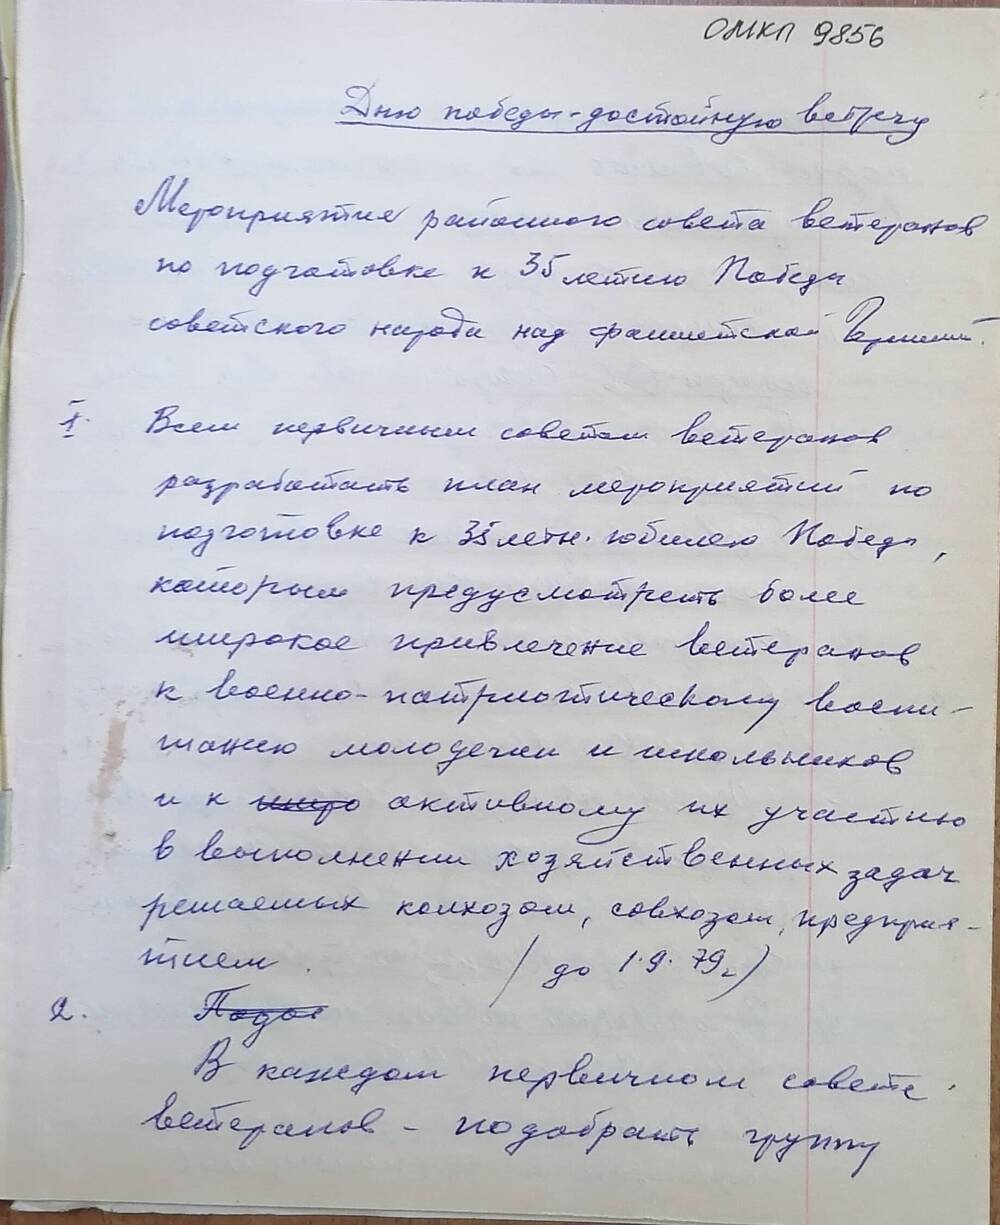 ОМКП 9856
Дню победы - достойную встречу
Мероприятие районного совета ветеранов
по подготовке к 35 летию Победы
советского народа над фашистской Германией.
1. Всем первичным советам ветеранов
разработать план мероприятий по
подготовке к 35 летн. юбилею Победы,
которым предусмотреть более
широкое привлечение ветеранов
к военно-патриотическому воспи-
танию молодежи и школьников
и к широ активному их участию
в выполнении хозяйственных задач
решаемых колхозом, совхозом, предприя-
тием. / до 1.9.79г)
2. Подоб
В каждом первичном совете
ветеранов - подобрать группу